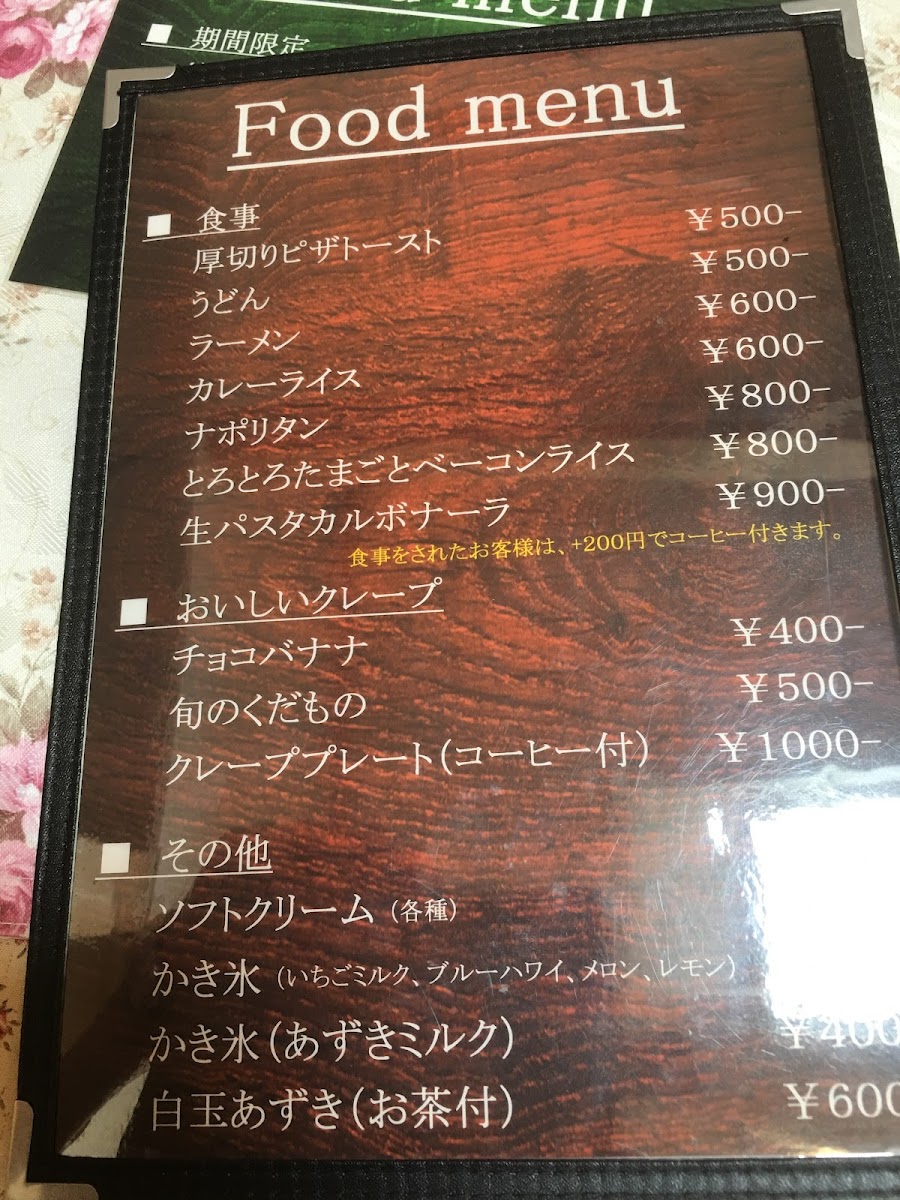 menu
■ 期間限定
Food menu
■ 食事
厚切りピザトースト ￥500-
うどん ￥500-
ラーメン ￥600-
カレーライス ￥600-
ナポリタン ￥800-
とろとろたまごとベーコンライス ￥800-
生パスタカルボナーラ ￥900-
食事をされたお客様は、+200円でコーヒー付きます。
■ おいしいクレープ
チョコバナナ ￥400-
旬のくだもの ￥500-
クレーププレート(コーヒー付) ￥1000-
■ その他
ソフトクリーム (各種)
かき氷 (いちごミルク、ブルーハワイ、メロン、レモン)
かき氷(あずきミルク) ￥400
白玉あずき(お茶付) ￥600